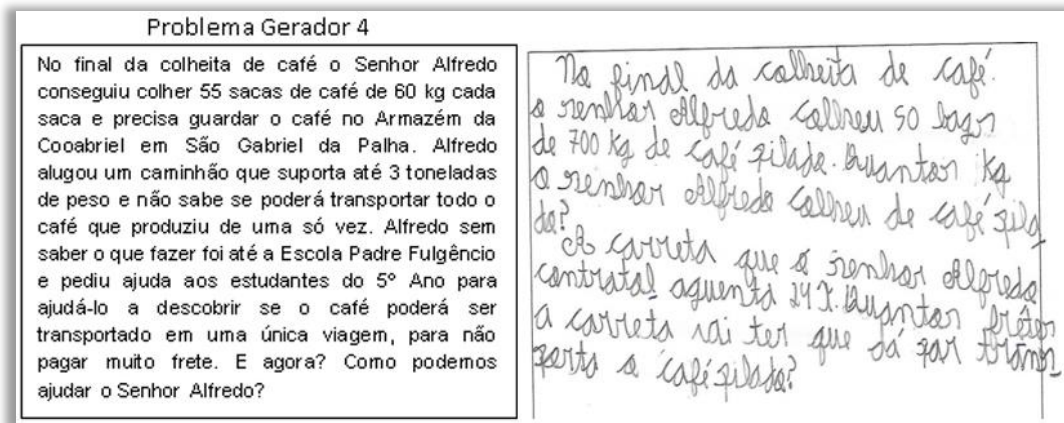 Problema Gerador 4
No final da colheita de café o Senhor Alfredo
conseguiu colher 55 sacas de café de 60 kg cada
saca e precisa guardar o café no Armazém da
Cooabriel em São Gabriel da Palha. Alfredo
alugou um caminhão que suporta até 3 toneladas
de peso e não sabe se poderá transportar todo o
café que produziu de uma só vez. Alfredo sem
saber o que fazer foi até a Escola Padre Fulgêncio
e pediu ajuda aos estudantes do 5º Ano para
ajudá-lo a descobrir se o café poderá ser
transportado em uma única viagem, para não
pagar muito frete. E agora? Como podemos
ajudar o Senhor Alfredo?
No final da colheita de café.
o senhor Alfredo colheu 50 bags
de 700 kg de café pilado. Quantos kg
o senhor Alfredo colheu de café pila
do?
A carreta que o senhor Alfredo
contratal aguenta 24 T. Quantos frêtes
a carreta vai ter que dá par trans
porta o café pilado?